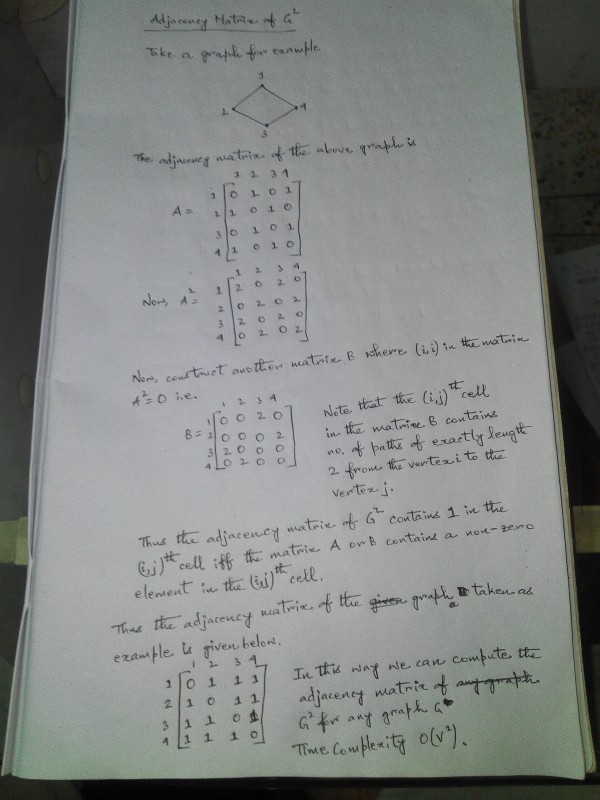 Adjacency Matrix of G²
Take a graph for example
1
2 4
3
The adjacency matrix of the above graph is
1 2 3 4
1 0 1 0 1
A = 2 1 0 1 0
3 0 1 0 1
4 1 0 1 0
1 2 3 4
1 2 0 2 0
Now, A² = 2 0 2 0 2
3 2 0 2 0
4 0 2 0 2
Now, construct another matrix B where (i,i) in the matrix
A² = 0 i.e.
1 2 3 4
1 0 0 2 0
B = 2 0 0 0 2
3 2 0 0 0
4 0 2 0 0
Note that the (i,j)th cell
in the matrix B contains
no. of paths of exactly length
2 from the vertex i to the
vertex j.
Thus the adjacency matrix of G² contains 1 in the
(i,j)th cell iff the matrix A or B contains a non-zero
element in the (i,j)th cell.
Thus the adjacency matrix of the given graph taken as
example is given below.
1 2 3 4
1 0 1 1 1
2 1 0 1 1
3 1 1 0 1
4 1 1 1 0
In this way we can compute the
adjacency matrix of any graph
G² for any graph G
Time Complexity O(V²).